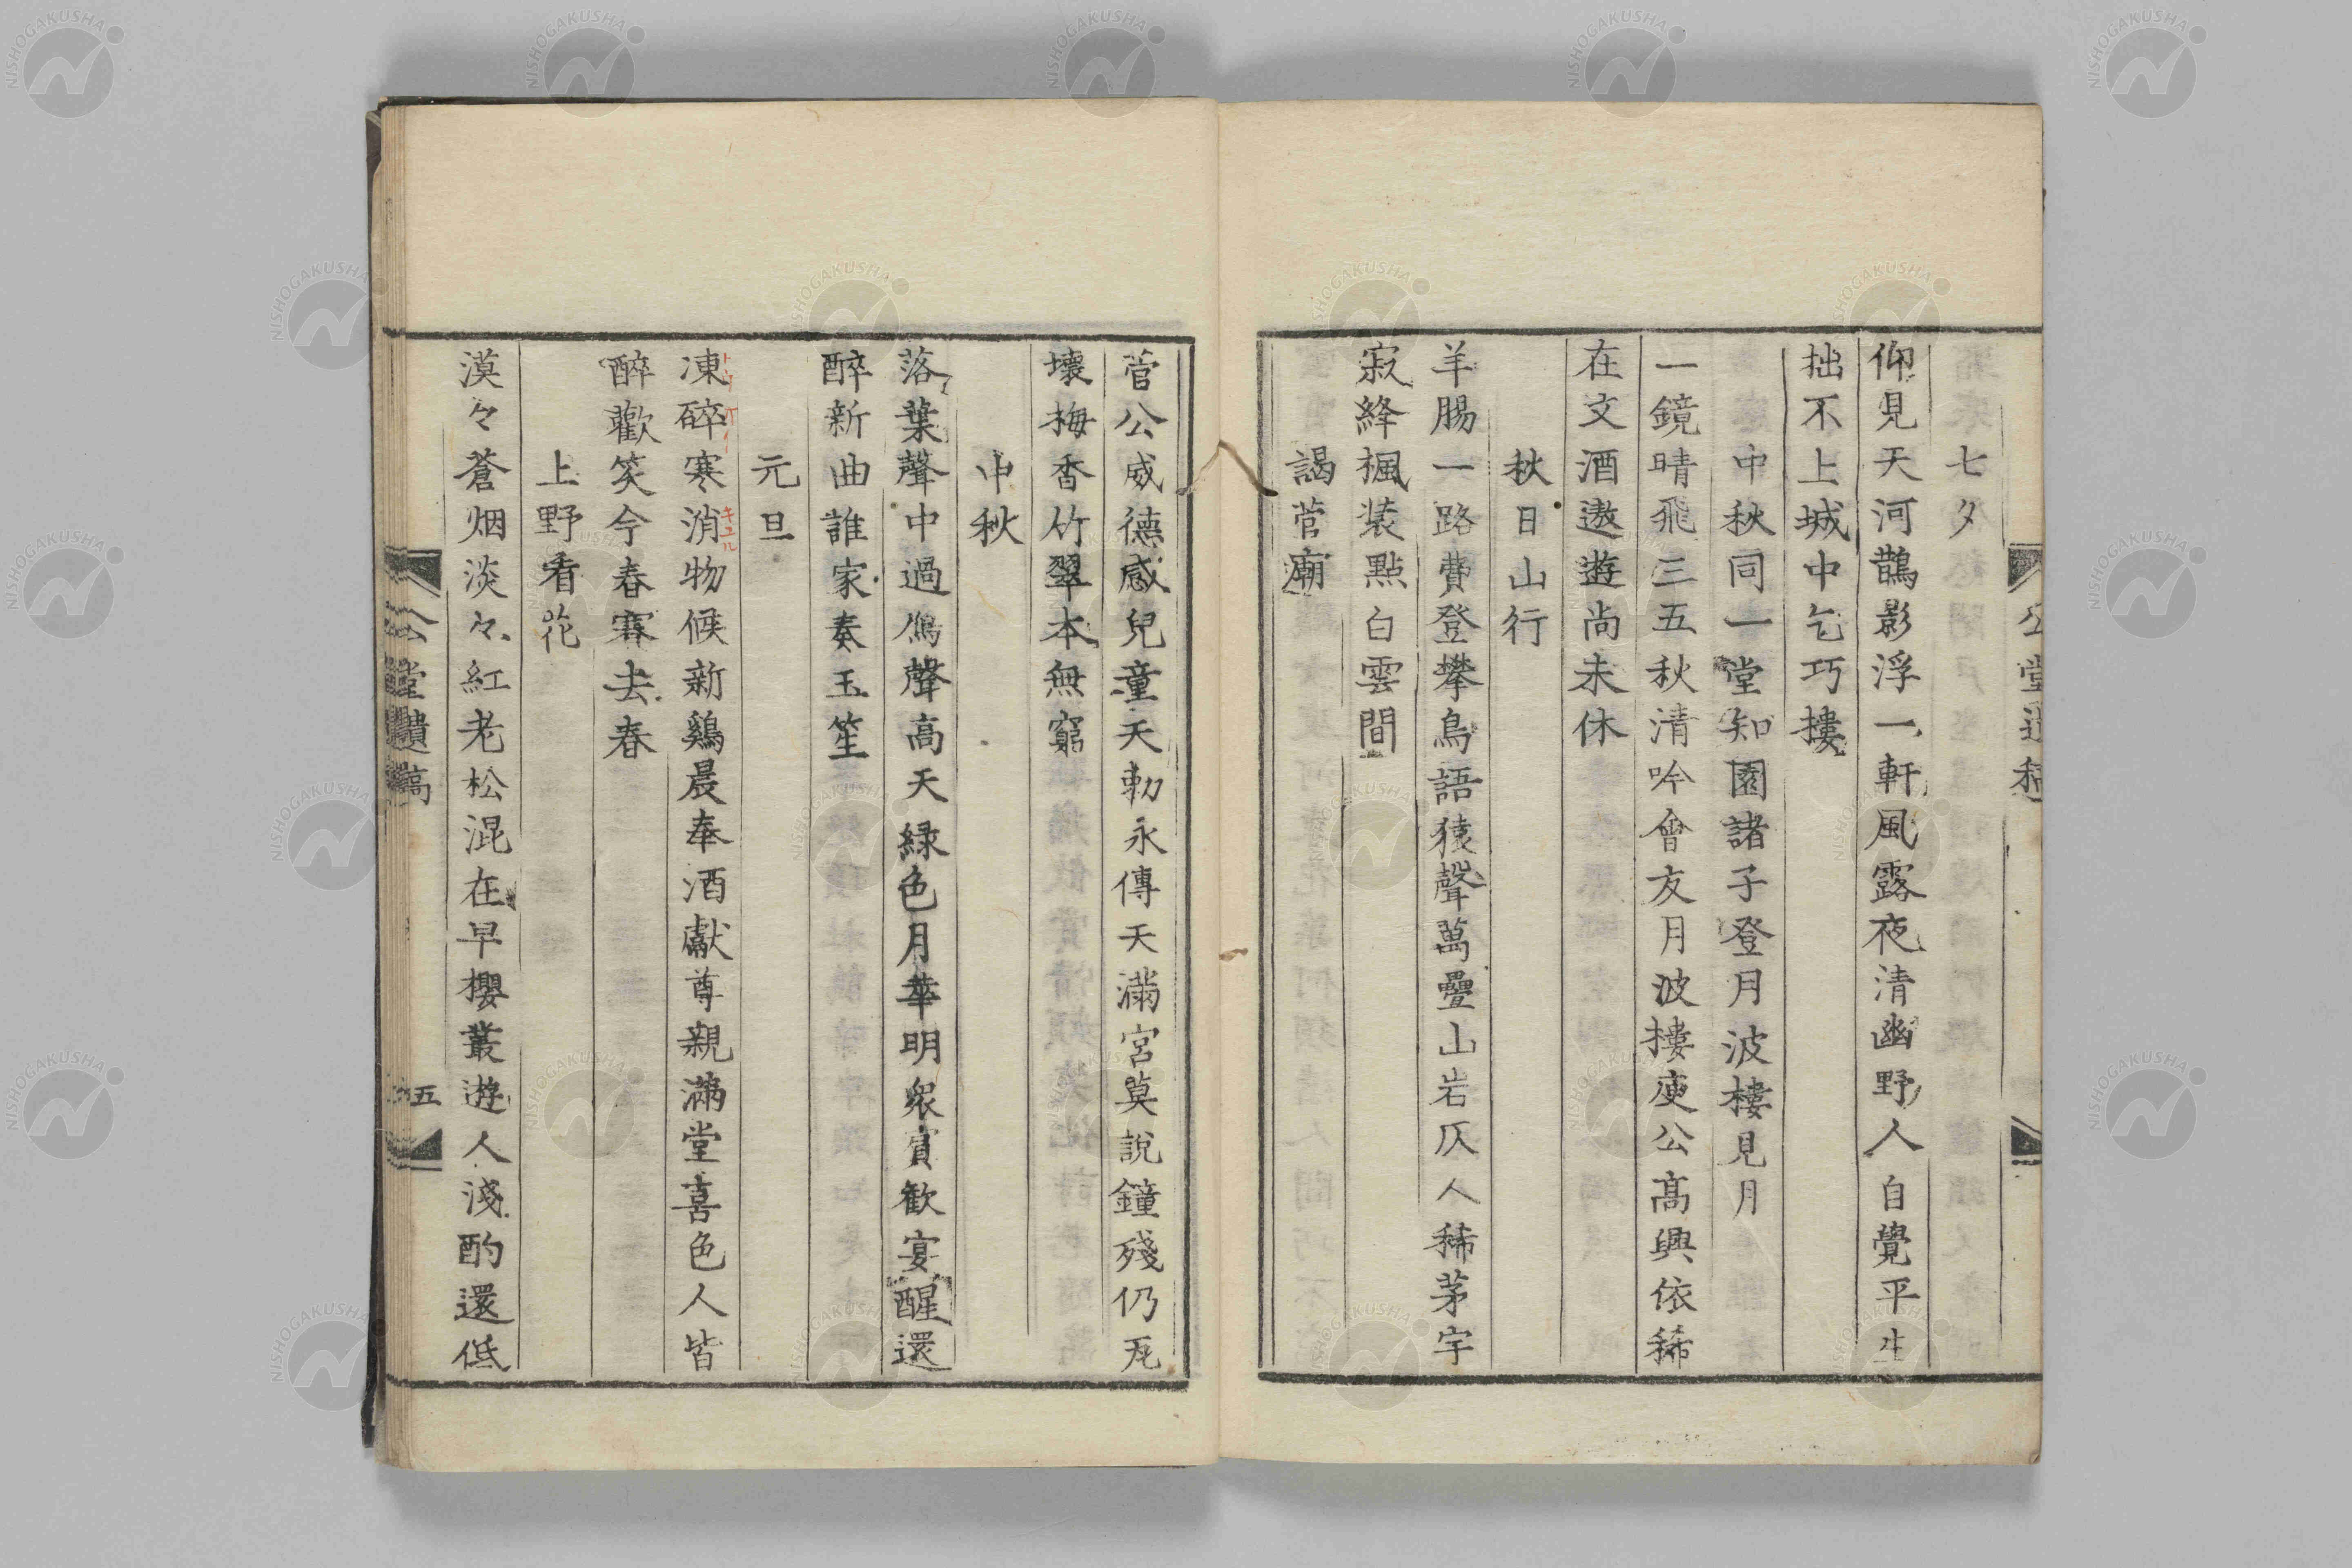 七夕
仰見天河鵲影浮一軒風露夜清幽野人自覺平生
拙不上城中乞巧樓
中秋同一堂知園諸子登月波樓見月
一鏡晴飛三五秋清吟會友月波樓庾公高興依稀
在文酒遨遊尚未休
秋日山行
羊腸一路費登攀鳥語猿聲萬疊山岩仄人稀茅宇
寂絳楓裝點白雲間
謁菅廟
菅公威德感兒童天勅永傳天滿宮莫說鐘殘仍瓦
壞梅香竹翠本無窮
中秋
落葉聲中過鴈聲高天緑色月華明衆賓歓宴醒還
醉新曲誰家奏玉笙
元旦
凍碎寒消物候新鷄晨奉酒獻尊親滿堂喜色人皆
キユル
醉歡笑今春賽去春
上野看花
漠々蒼烟淡々紅老松混在早櫻叢遊人淺酌還低
公堂遺稿
五
NISHOGAKUSHA